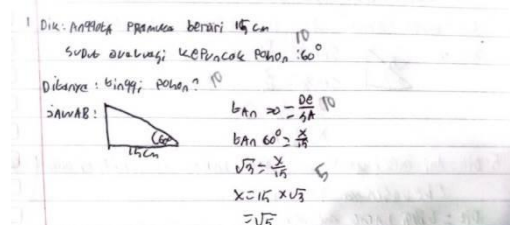 1 Dik: Anggota pramuka berdiri 15 cm 10
Sudut evaluasi kepuncak pohon : 60°
Ditanya : tinggi pohon? 10
JAWAB :
60°
15cm
tAn = De/SA 10
tAn 60° = x/15
√3 = x/15 5
x = 15 x √3
= √5